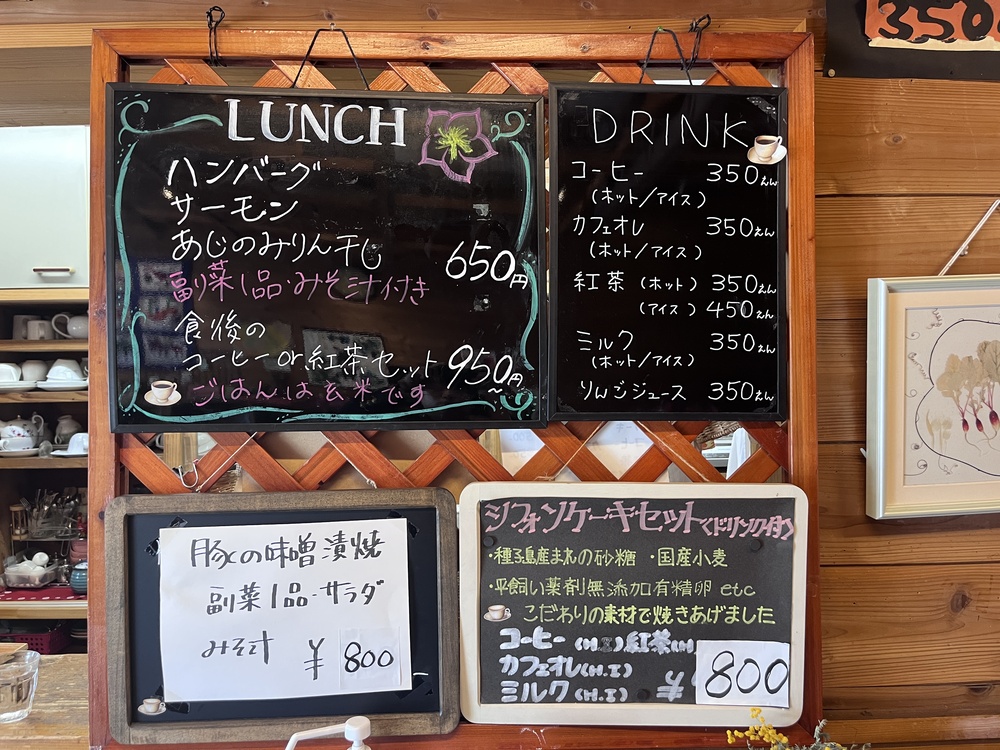 350
LUNCH
ハンバーグ
サーモン
あじのみりん干し
650円
副菜1品・みそ汁付き
食後の
コーヒーor紅茶セット950円
ごはんは玄米です
DRINK
コーヒー 350えん
(ホット/アイス)
カフェオレ 350えん
(ホット/アイス)
紅茶 (ホット) 350えん
(アイス) 450えん
ミルク 350えん
(ホット/アイス)
りんごジュース 350えん
豚の味噌漬焼
副菜1品・サラダ
みそ汁 ¥800
シフォンケーキセット〈ドリンク付〉
・種子島産まれの砂糖 ・国産小麦
・平飼い薬剤無添加有精卵 etc
こだわりの素材で焼きあげました
コーヒー(H.I)紅茶(H
カフェオレ(H.I)
ミルク(H.I) ¥800